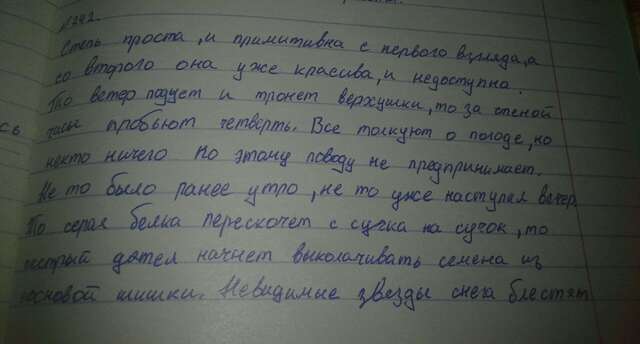 N292.
Степь проста, и примитивна с первого взгляда, а
со второго она уже красива, и недоступна.
То ветер подует и тронет верхушки, то за стеной
часы пробьют четверть. Все толкуют о погоде, но
некто ничего по этому поводу не предпринимает.
Не то было ранее утро, не то уже наступал вечер.
То серая белка перескочет с сучка на сучок, то
пестрый дятел начнет выколачивать семена из
сосновой шишки. Невидимые звезды снега блестят